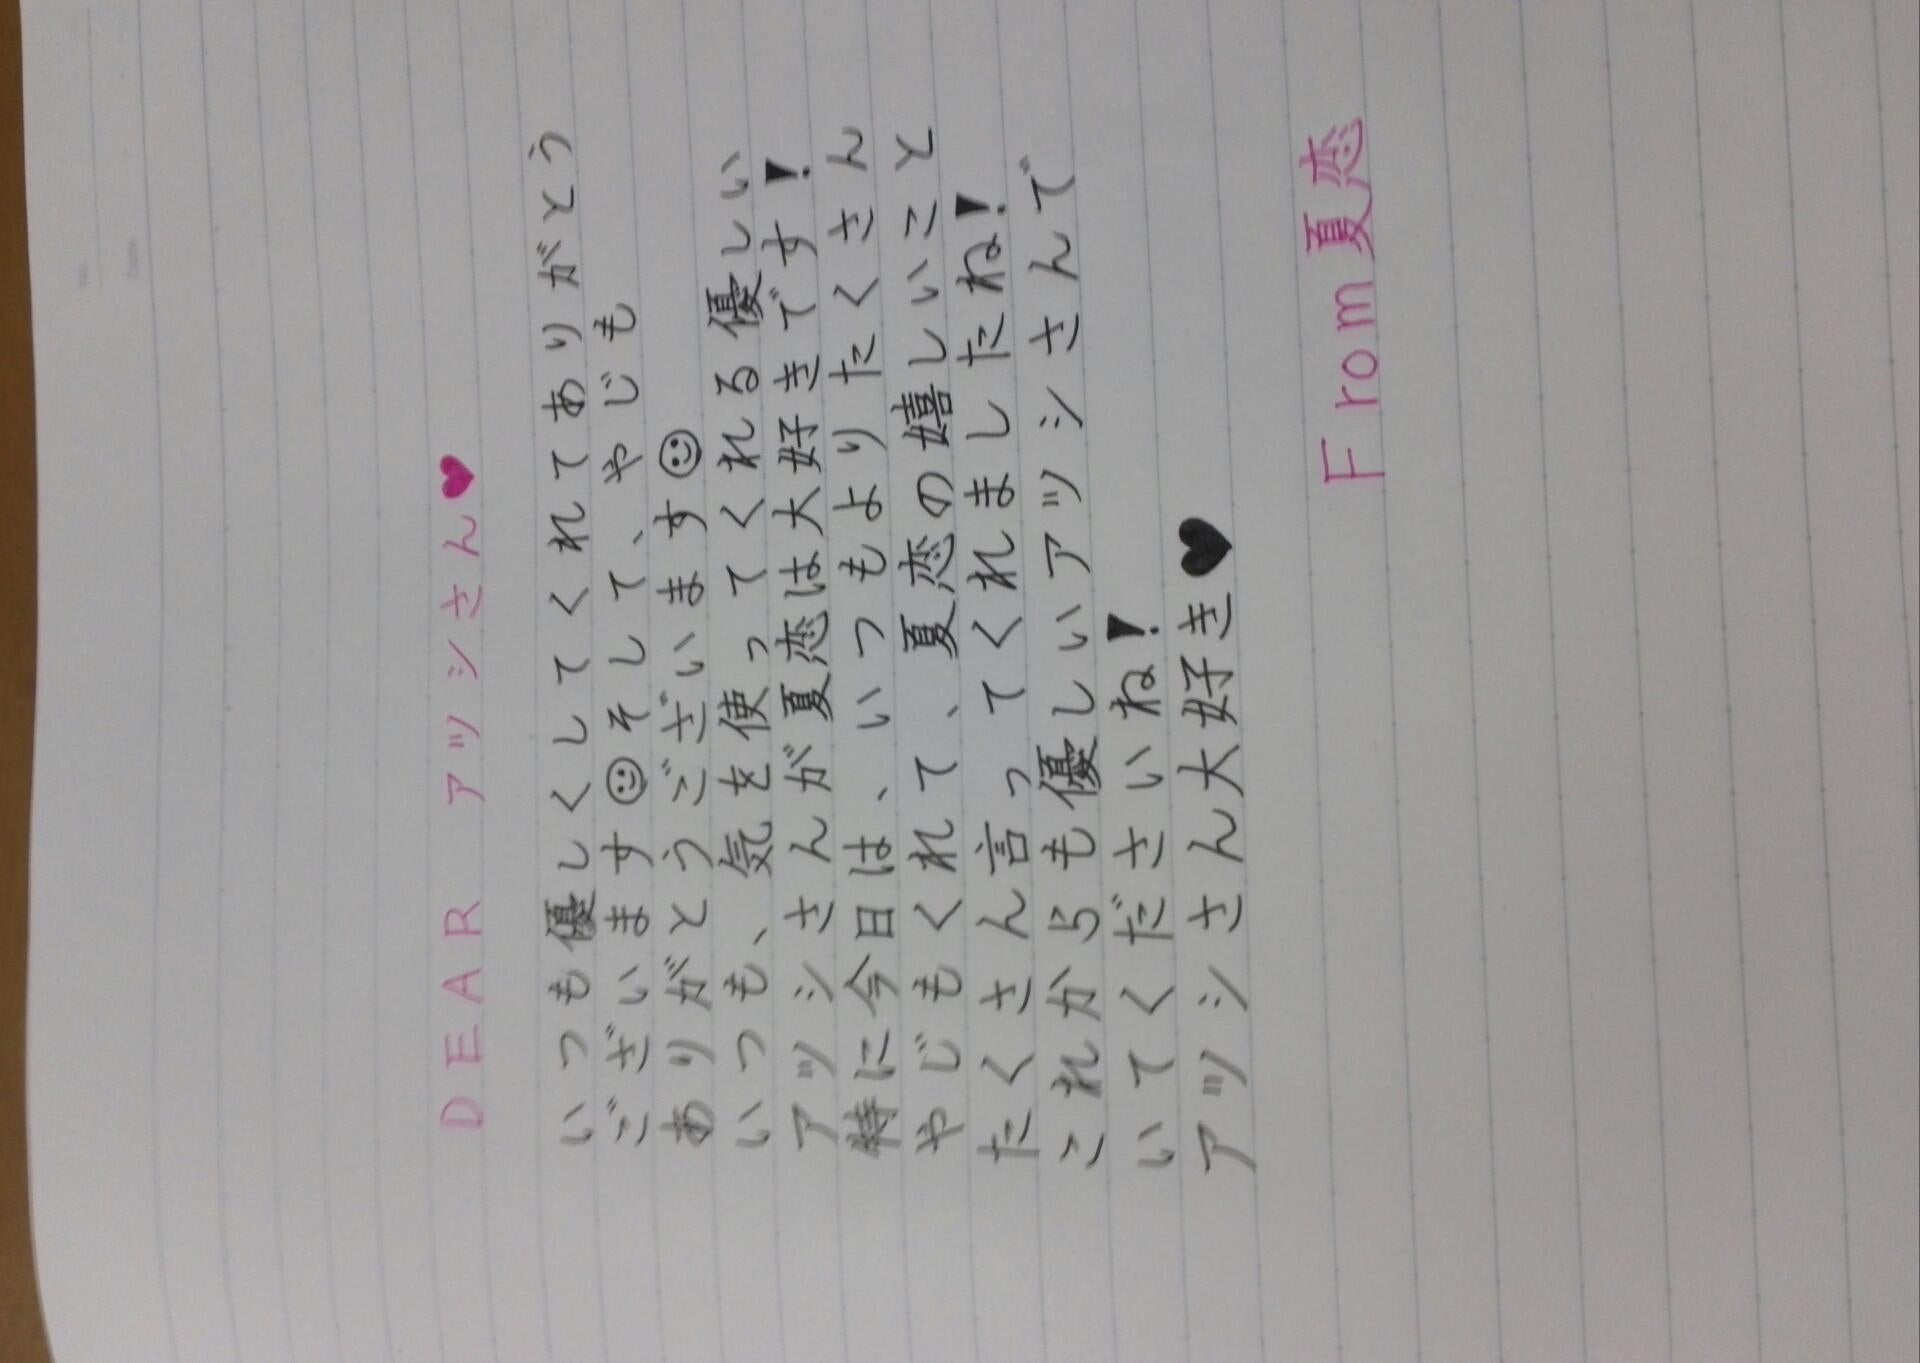 DEAR アッシさん♥
いつも優しくしてくれてありがとう
ございます☺そして、やじも
ありがとうございます☺
いつも、気を使ってくれる優しい
アッシさんが夏恋は大好きです!
特に今日は、いつもよりたくさん
やじもくれて、夏恋の嬉しいこと
たくさん言ってくれましたね!
これからも優しいアッシさんで
いてくださいね!
アッシさん大好き♥
From夏恋